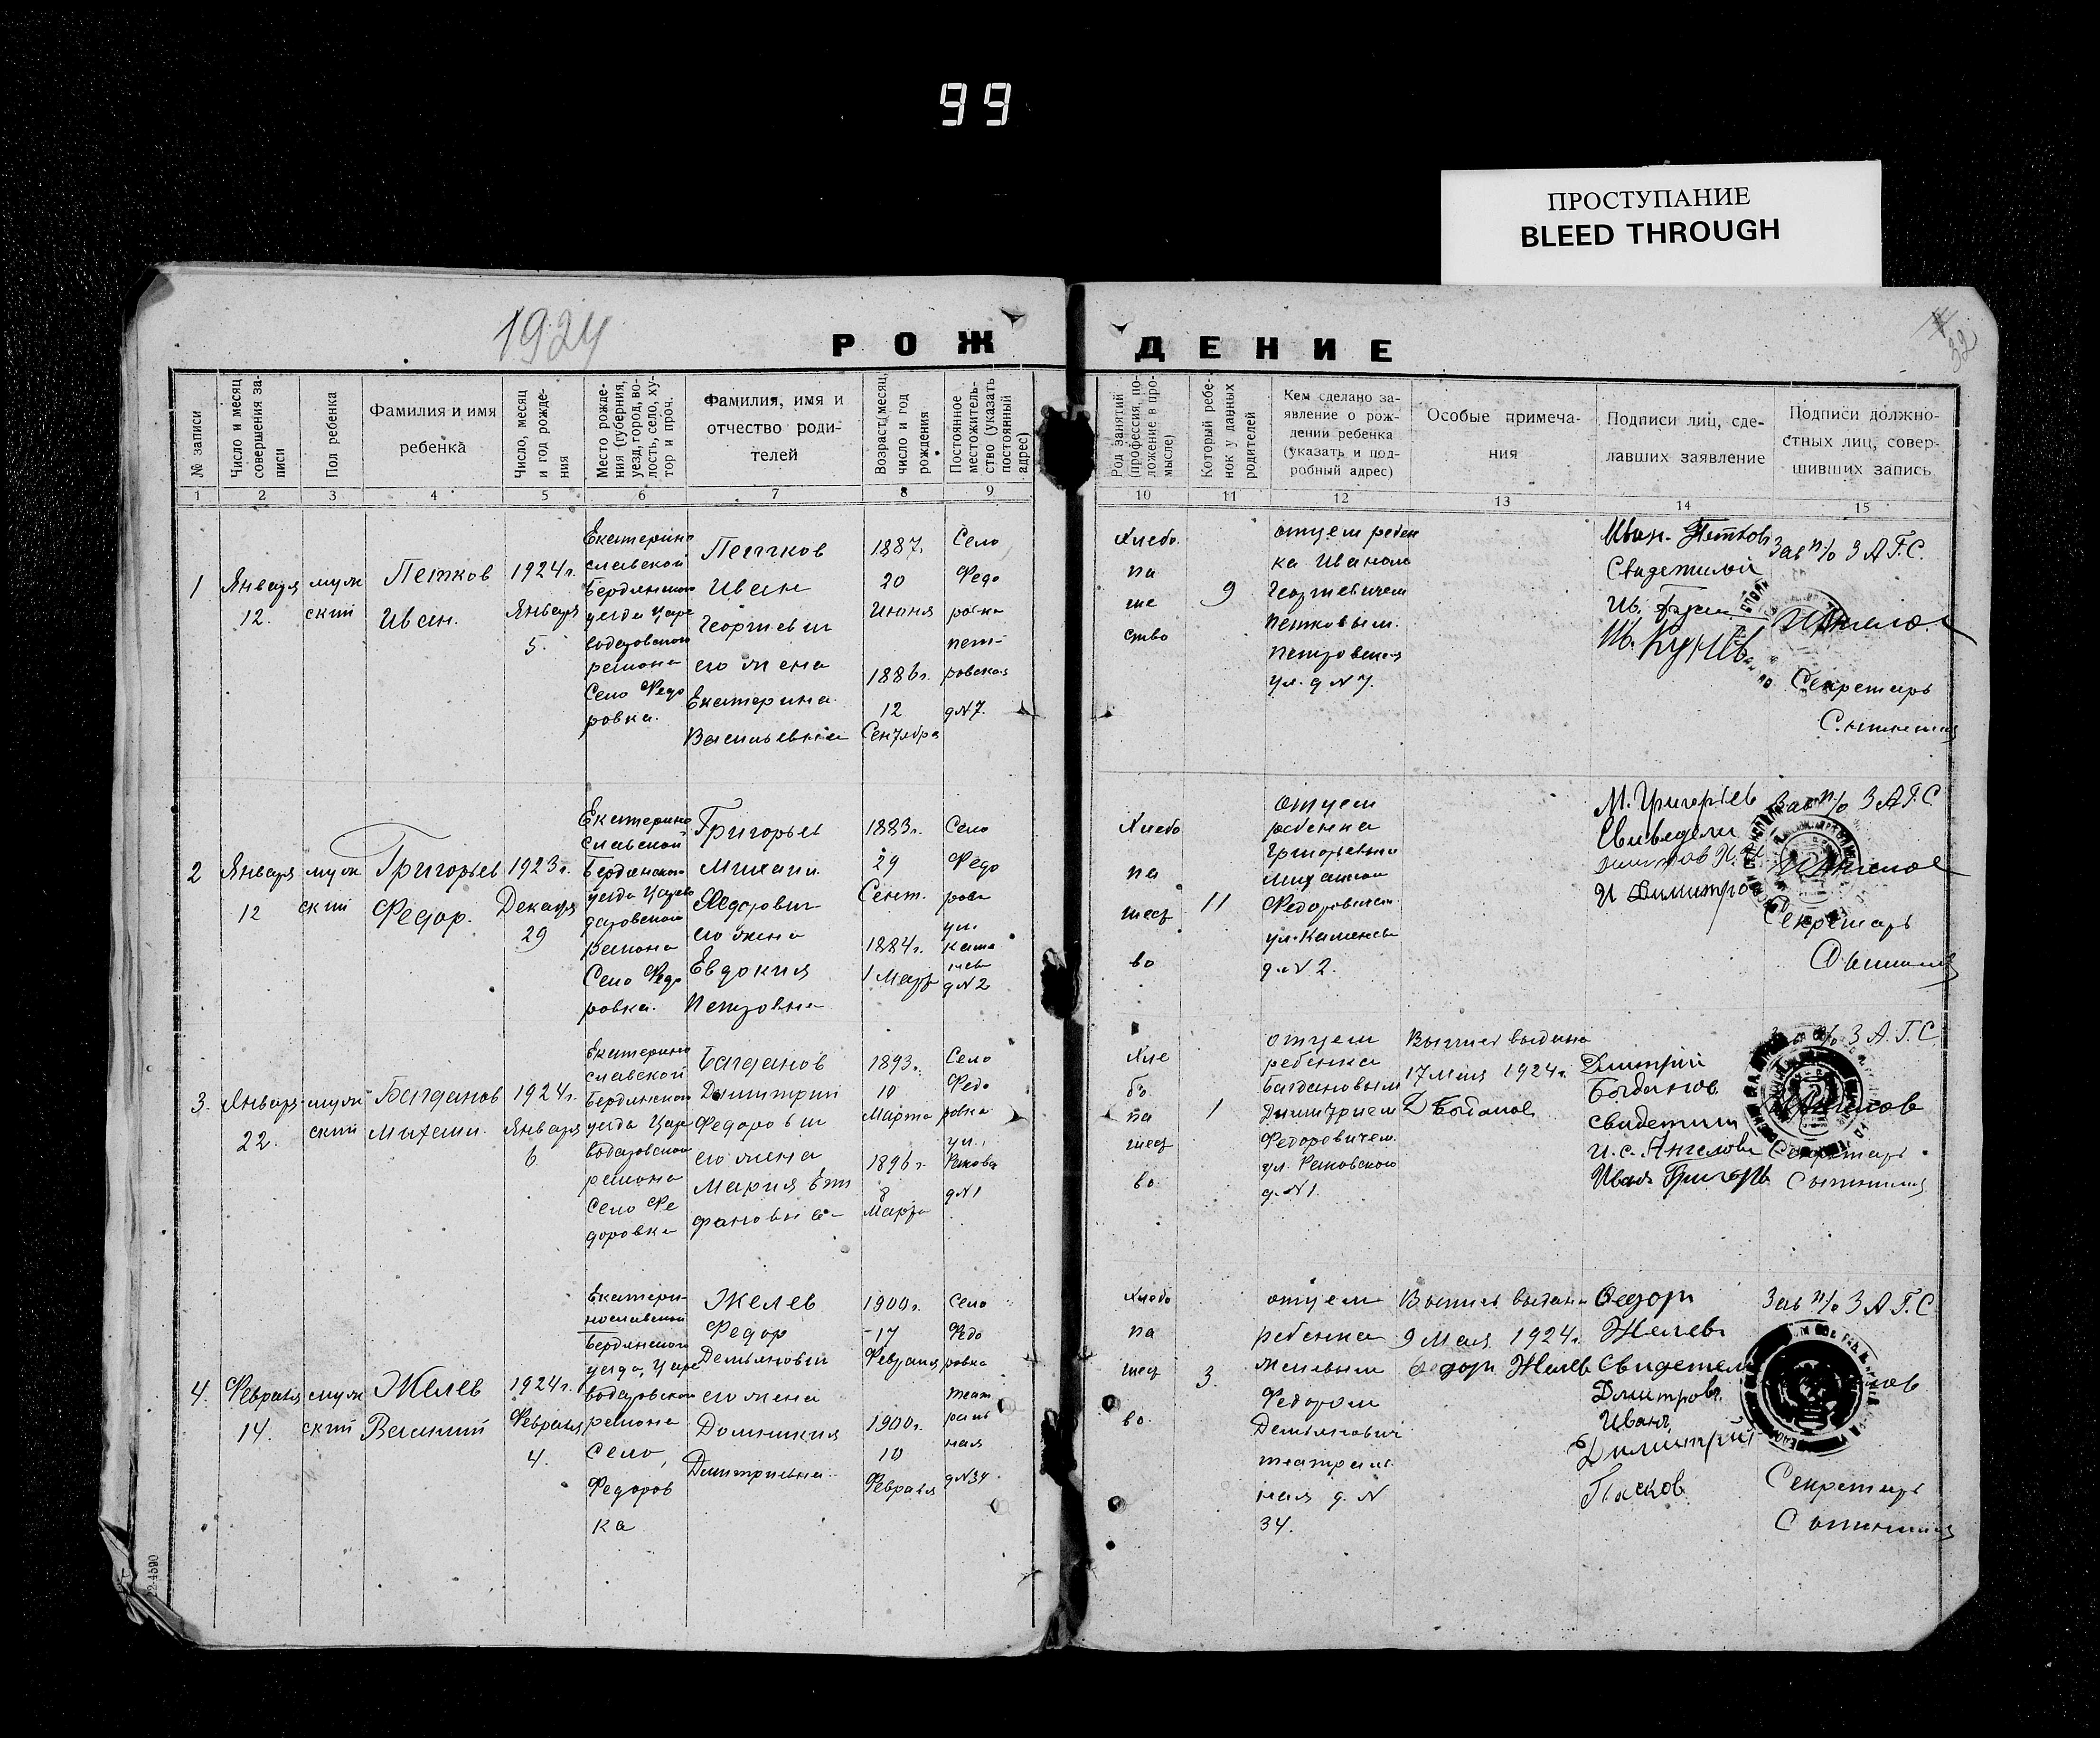 99
ПРОСТУПАНИЕ
BLEED THROUGH
1924
32
РОЖДЕНИЕ
№ записи
Число и месяц совершения записи
Пол ребенка
Фамилия и имя
ребенка
Число, месяц и год рождения
Место рождения (губерния, уезд, город, волость, село, хутор и проч.
Фамилия, имя и
отчество роди-
телей
Возраст, месяц, число и год рождения
Постоянное местожительство (указать постоянный адрес)
Род занятий (профессия, положение в промысле)
Который ребенок у данных родителей
Кем сделано за-
явление о рож-
дении ребенка
(указать и под-
робный адрес)
Особые примеча-
ния
Подписи лиц, сде-
лавших заявление
Подписи должно-
стных лиц, совер-
шивших запись
1 2 3 4 5 6 7 8 9 10 11 12 13 14 15
1
Января
12.
муж
ский
Петков
Иван.
1924г.
Января
5.
Екатерино
славской
Бердянского
уезда Царе
водаровского
района
Село Федо
ровка.
Петков
Иван
Георгиевич
его жена
Екатерина
Васильевна
1887г.
20
Июня
1886г.
12
Сентября
Село
Федо
ровка
пет-
ровская
д N7.
Хлебо
па
ше
ство
9
отцем ребен
ка Иваном
Георгиевичем
Петковым.
Петровская
ул. д N7.
Иван Петков
Свидетели
Зав п/о ЗАГС.
Секретарь
2
Января
12
муж
ский
Григорьев
Федор.
1923г.
Декабря
29
Екатерино
славской
Бердянского
уезда Царево
даровского
района
Село Федо
ровка.
Григорьев
Михаил
Федорович
его жена
Евдокия
Петровна
1883г.
29
Сент.
1884г.
1 Март
Село
Федо
ровк
ул.
д N2
Хлебо
па
шест
во
11
отцем
ребенка
Григорьевым
Михаилом
Федоровичем
д. N 2.
М. Григорьев
Зав п/о ЗАГС
Секретарь
3.
Января
22.
муж
ский
Багданов
Михаил.
1924г.
Января
6
Екатерино
славской
Бердянского
уезда Царе
водаровского
района
Село Фе
доровка
Багданов
Димитрий
Федорович
его жена
Мария Епи
фановна
1893г.
10
Марта
1896г.
8
Марта
Село
Федо
ровка
ул.
д N1
Хле
бо
па
шест
во
1
отцем
ребенка
Багдановым
Димитрием
Федоровичем
ул. Раковского
д. N1.
Выпись выдана
17 Мая 1924г.
Дмитрий
Богданов
свидетели
ЗАГС
Секретарь
4.
Февраля
14.
муж
ский
Желев
Василий
1924г.
Февраля
4.
Екатери-
нославской
Бердянского
уезда, Царе
водаровского
района
Село,
Федоров
ка
Желев
Федор
Демьянович
его жена
Домникия
Дмитриевна
1900г.
17
Февраля
1900г.
10
Февраля
Село
Федо
ровка
теат
раль
ная
д N34
Хлебо
па
шест
во
3.
отцем
ребенка
Желевым
Федором
Демьянович
театраль
ная д. N
34.
Выпись выдана
9 Мая 1924г.
Федор Желев
Федор
Желев
Свидетели
Дмитров
Иван
Димитрий
Зав п/о ЗАГС
Секретарь
22-4590